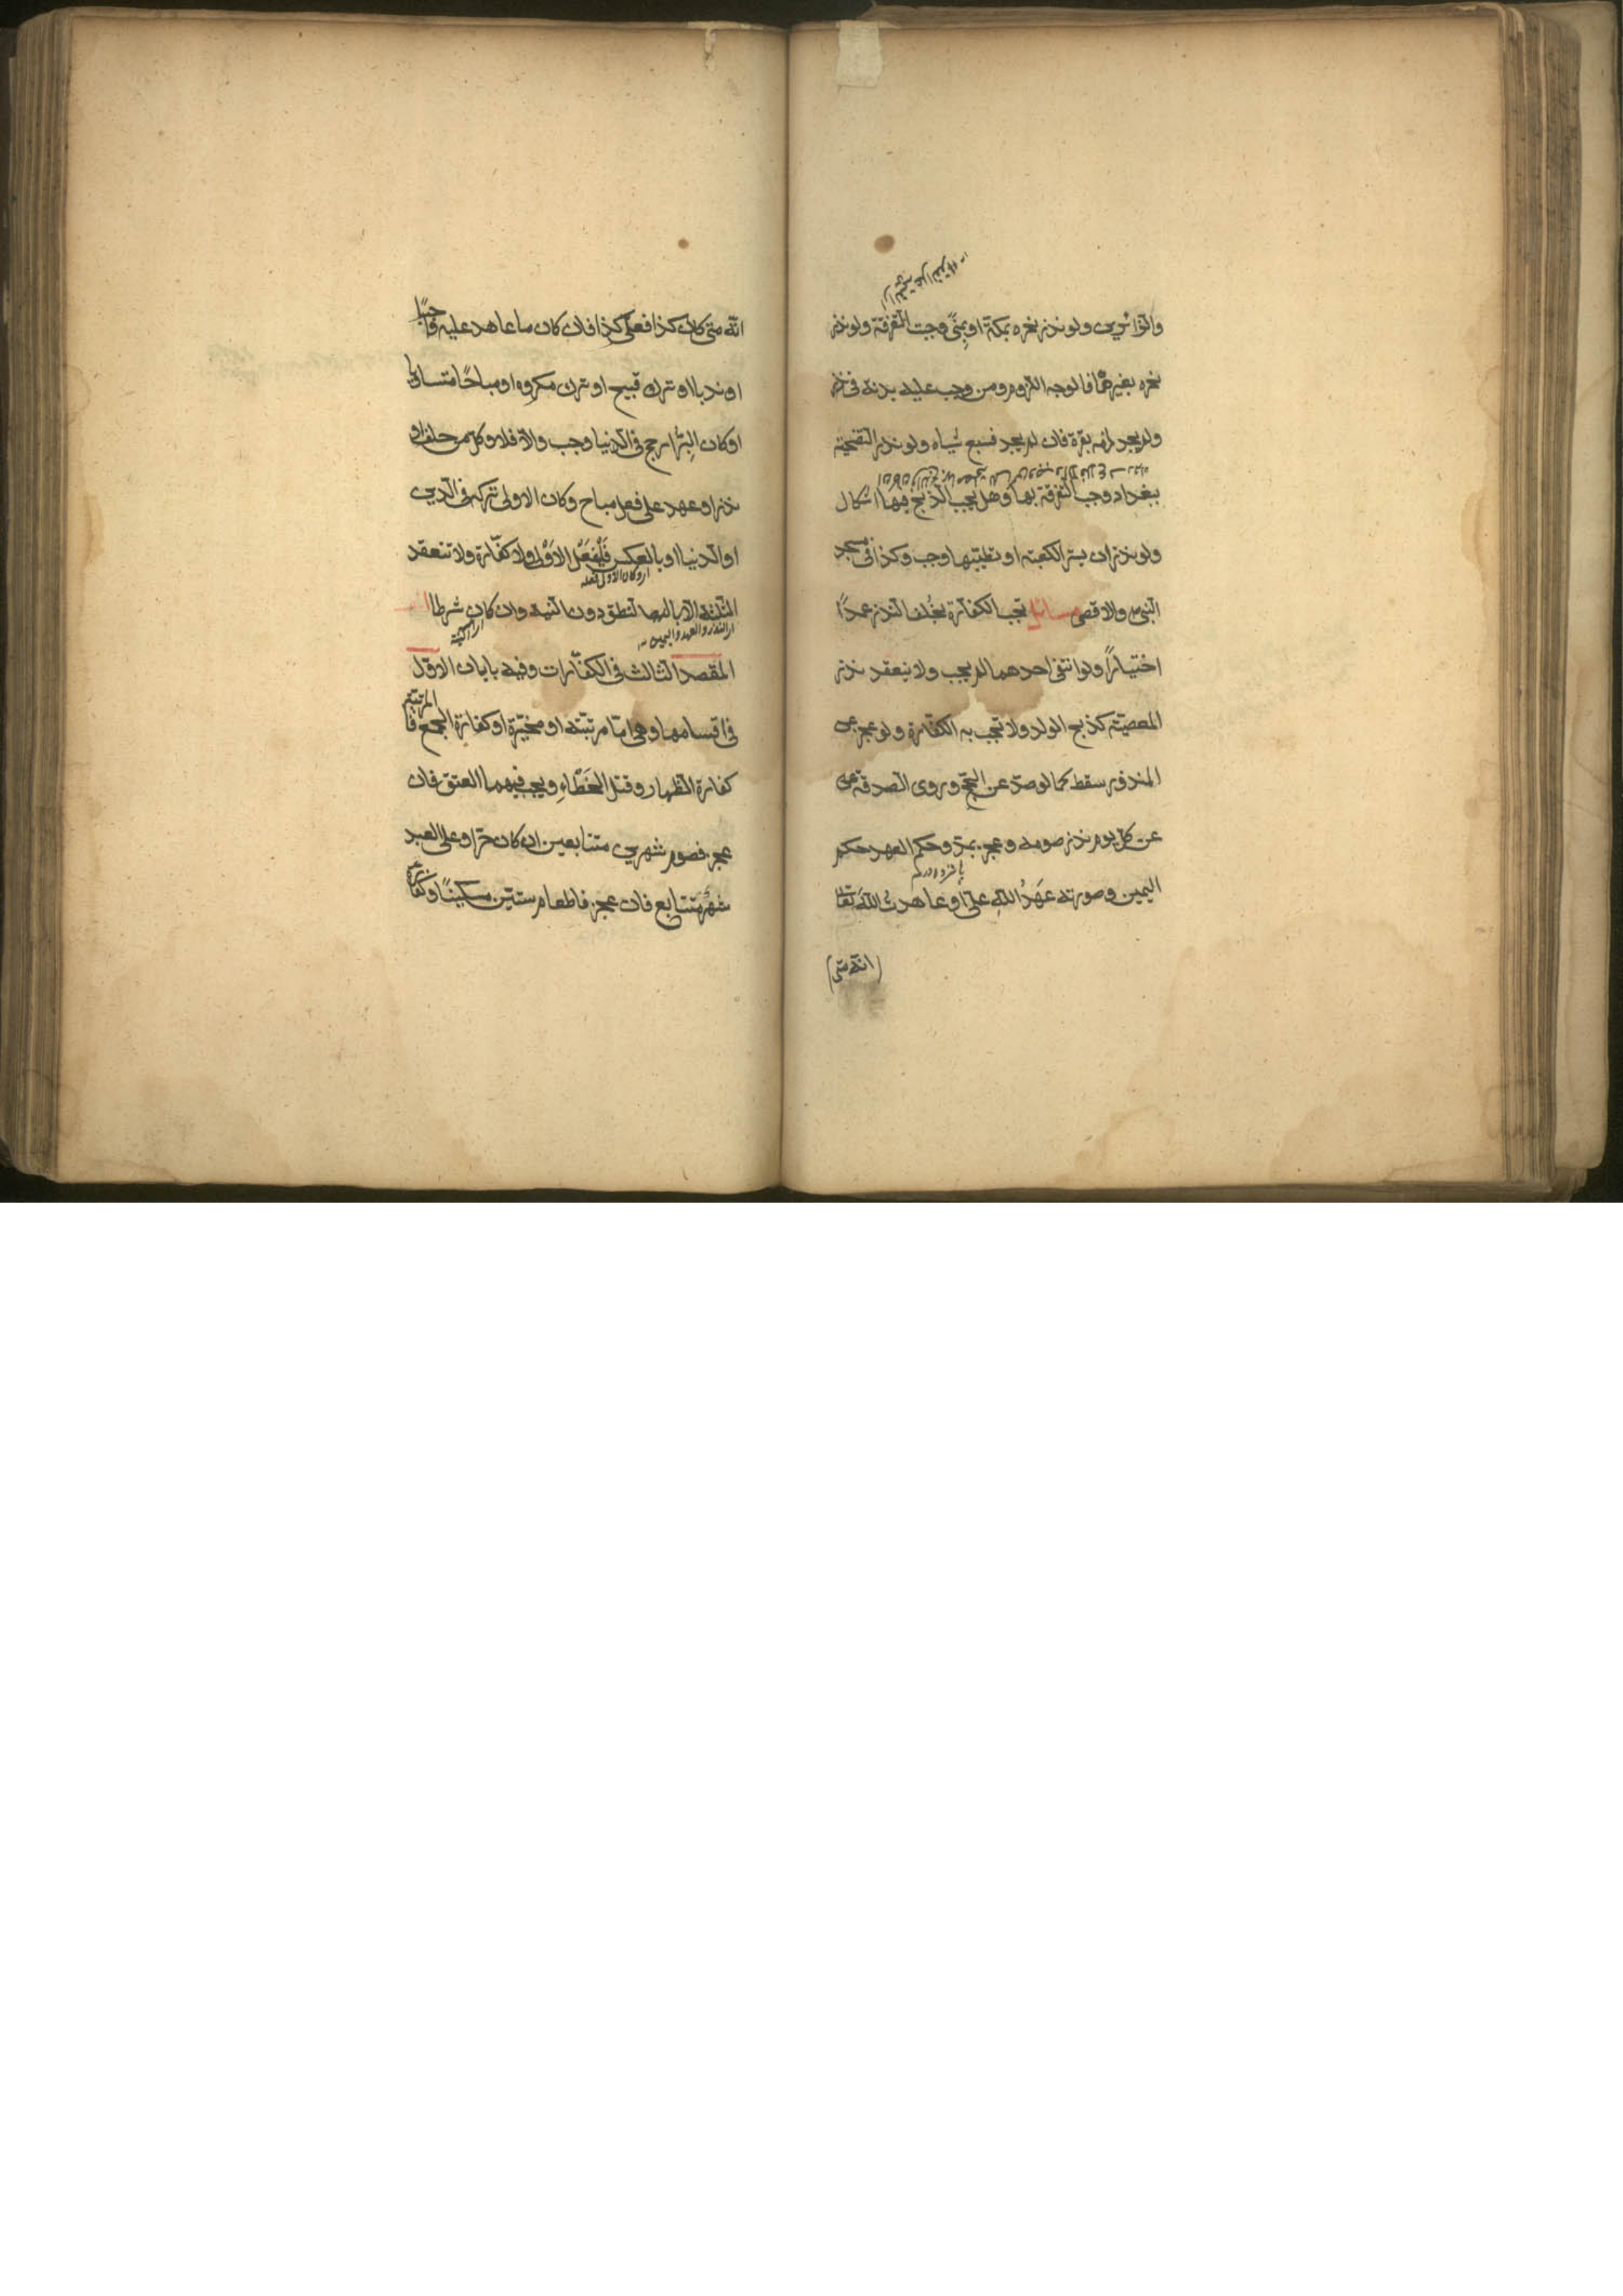 والزائرين ولو نذر نحره بمكة او بمنًى وجبت التفرقة ولو نذر
نحره بغيرهما فالوجه اللزوم ومن وجب عليه بدنة في نذر
ولم يجد لزمه بقرة فان لم يجد فسبع شياه ولو نذر التضحية
ببغداد وجب التفرقة بها وهل يجب الذبح فيها اشكال
ولو نذر ان يستر الكعبة او تطييبها وجب وكذا في مسجد
النبي والاقصى مسائل تجب الكفارة بخُلف النذر عمدًا
اختيارًا ولو انتفى احدهما لم يجب ولا ينعقد نذر
المعصية كذبح الولد ولا تجب به الكفارة ولو عجز عن
المنذور سقط كما لو صدّ عن الحجّ وروى الصدقة عن
عن كل يوم نذر صومه وعجز بمدّ وحكم العهد حكم
اليمين وصورته عَهدُ اللّٰه عليّ او عاهدتُ اللّٰه تعالى
(انه متى)
انّه متى كان كذا فعليّ كذا فان كان ما عاهد عليه واجبًا
او ندبا او ترك قبيح او ترك مكروه او مباحًا متساويا
او كان البِرُّ ارجح في الدنيا وجب والّا فلا وكل من حلف او
نذر او عهد على فعل مباح وكان الاولى تركه في الدين
او الدنيا او بالعكس فَلْيفعَل الاَوْلى ولا كفّارة ولا تنعقد
او كان الاولى فعله
الثلثة الّا بالنطق دون النية وان كان شرطا
اى النذر والعهد واليمين
المقصد الثالث في الكفّارات وفيه بابان الاوّل
في اقسامها وهي امّا مرتّبة او مخيّرة او كفارة الجمع فالمرتبة
كفارة الظهار وقتل الخَطَاءِ ويجب فيهما العتق فان
عجز فصوم شهرين متتابعين ان كان حرّا وعلى العبد
شهْر متتابع فان عجز فاطعام ستّين مسكينًا وكفارة